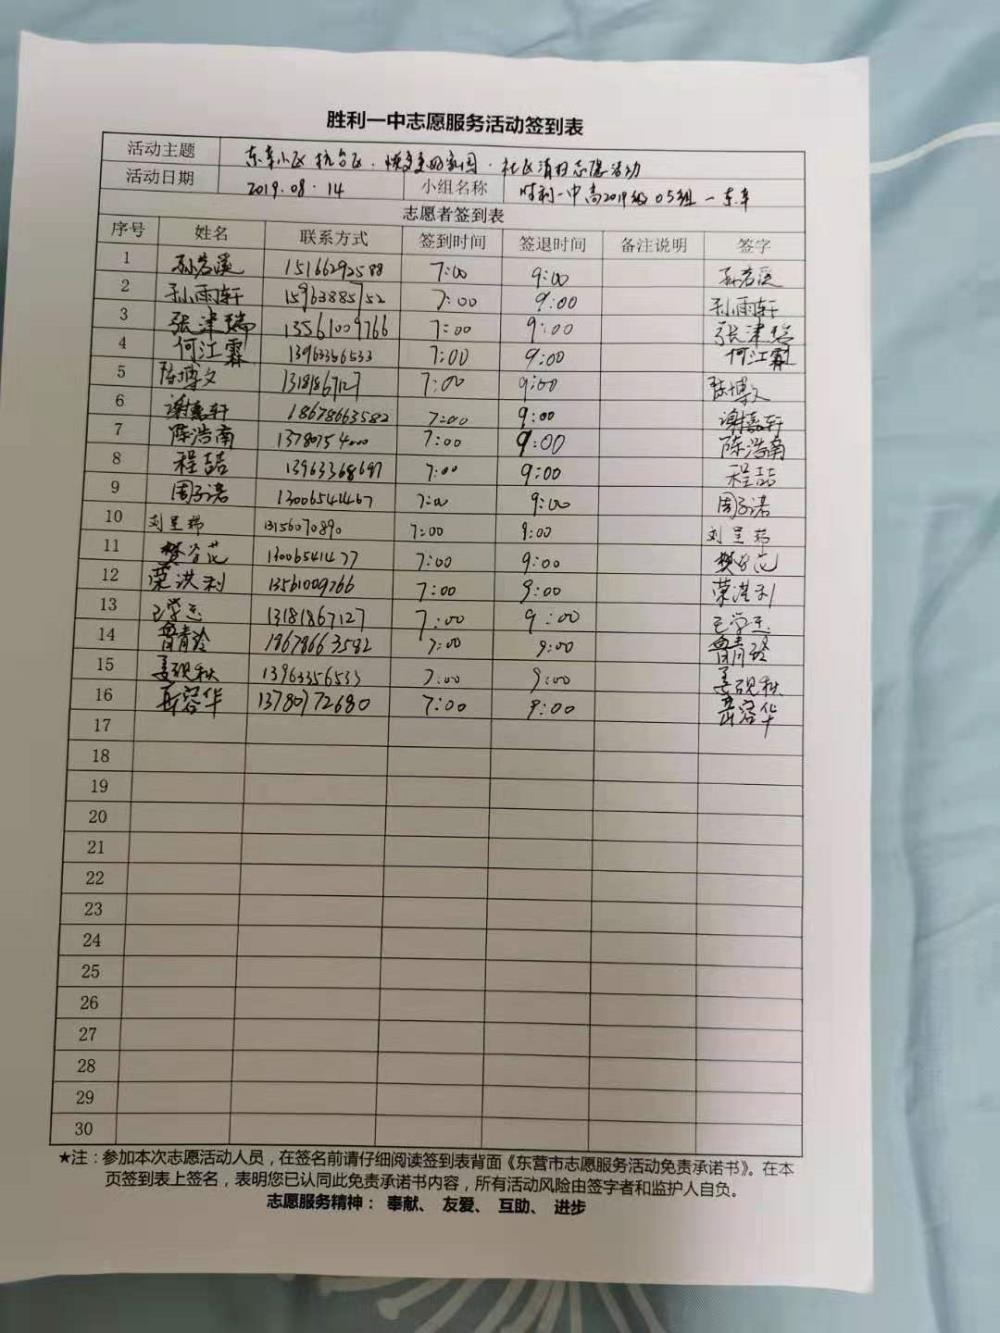 胜利一中志愿服务活动签到表
活动主题 东辛小区抗台风·恢复美丽家园·社区清扫志愿活动
活动日期 2019.08.14 小组名称 胜利一中高2019级05组—东辛
志愿者签到表
序号 姓名 联系方式 签到时间 签退时间 备注说明 签字
1 孙若溪 15166292588 7:00 9:00 孙若溪
2 孙雨轩 15963885752 7:00 9:00 孙雨轩
3 张津瑞 13561009766 7:00 9:00 张津瑞
4 何江霖 13963356533 7:00 9:00 何江霖
5 陈博文 13181867127 7:00 9:00 陈博文
6 谢熹轩 18678663582 7:00 9:00 谢熹轩
7 陈浩南 7:00 9:00 陈浩南
8 程喆 13963368697 7:00 9:00 程喆
9 周子诺 13006541467 7:00 9:00 周子诺
10 刘昱 13156070890 7:00 9:00 刘昱
11 13006541477 7:00 9:00
12 荣洪利 13561009766 7:00 9:00 荣洪利
13 13181867127 7:00 9:00
14 18678663582 7:00 9:00
15 姜砚秋 13963356533 7:00 9:00 姜砚秋
16 13780772680 7:00 9:00
17
18
19
20
21
22
23
24
25
26
27
28
29
30
★注：参加本次志愿活动人员，在签名前请仔细阅读签到表背面《东营市志愿服务活动免责承诺书》。在本
页签到表上签名，表明您已认同此免责承诺书内容，所有活动风险由签字者和监护人自负。
志愿服务精神： 奉献、 友爱、 互助、 进步